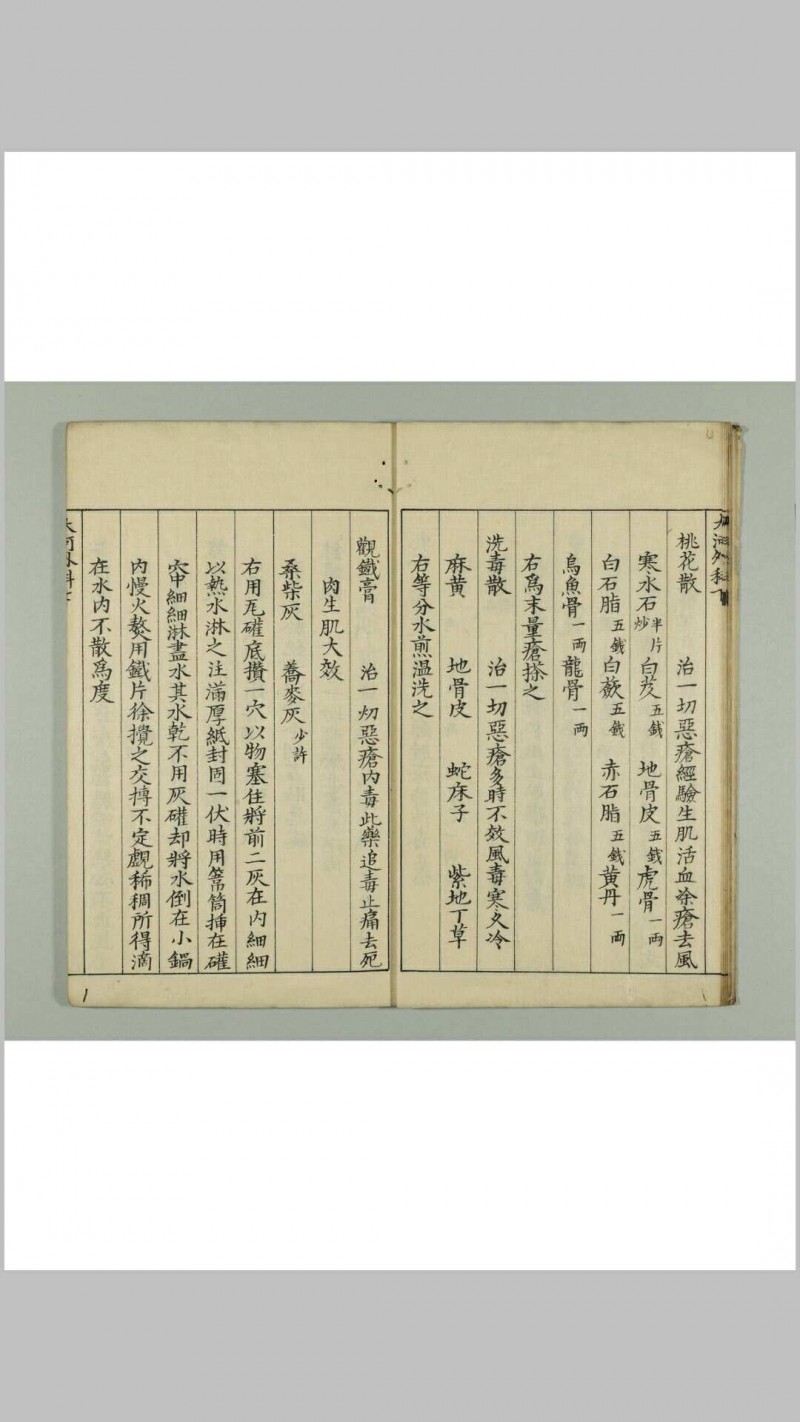 大河外科下
桃花散 治一切惡瘡經驗生肌活血塗瘡去風
寒水石半片炒 白芨五錢 地骨皮五錢 虎骨一兩
白石脂五錢 白蘞五錢 赤石脂五錢 黃丹一兩
烏魚骨一兩 龍骨一兩
右爲末量瘡搽之
洗毒散 治一切惡瘡多時不效風毒寒久冷
麻黄 地骨皮 蛇床子 紫地丁草
右等分水煎温洗之
觀鐵膏 治一切惡瘡内毒此藥追毒止痛去死
肉生肌大效
桑柴灰 蕎麥灰少許
右用瓦礶底攅一穴以物塞住將前二灰在内細細
以熱水淋之注滿厚紙封固一伏時用筩筒揷在礶
穴中細細淋盡水其水乾不用灰礶却將水倒在小鍋
内慢火熬用鐵片徐攪之交摶不定觑稀稠所得滴
在水内不散爲度